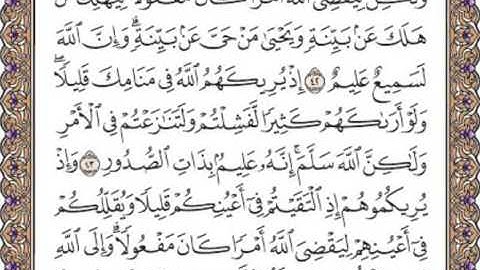 وَلَٰكِن لِّيَقْضِيَ ٱللَّهُ أَمْرًا كَانَ مَفْعُولًا لِّيَهْلِكَ مَنْ
هَلَكَ عَنۢ بَيِّنَةٍ وَيَحْيَىٰ مَنْ حَىَّ عَنۢ بَيِّنَةٍ ۗ وَإِنَّ ٱللَّهَ
لَسَمِيعٌ عَلِيمٌ ٤٢ إِذْ يُرِيكَهُمُ ٱللَّهُ فِى مَنَامِكَ قَلِيلًا ۖ
وَلَوْ أَرَىٰكَهُمْ كَثِيرًا لَّفَشِلْتُمْ وَلَتَنَٰزَعْتُمْ فِى ٱلْأَمْرِ
وَلَٰكِنَّ ٱللَّهَ سَلَّمَ ۗ إِنَّهُۥ عَلِيمٌۢ بِذَاتِ ٱلصُّدُورِ ٤٣ وَإِذْ
يُرِيكُمُوهُمْ إِذِ ٱلْتَقَيْتُمْ فِىٓ أَعْيُنِكُمْ قَلِيلًا وَيُقَلِّلُكُمْ
فِىٓ أَعْيُنِهِمْ لِيَقْضِىَ ٱللَّهُ أَمْرًا كَانَ مَفْعُولًا ۗ وَإِلَى ٱللَّهِ